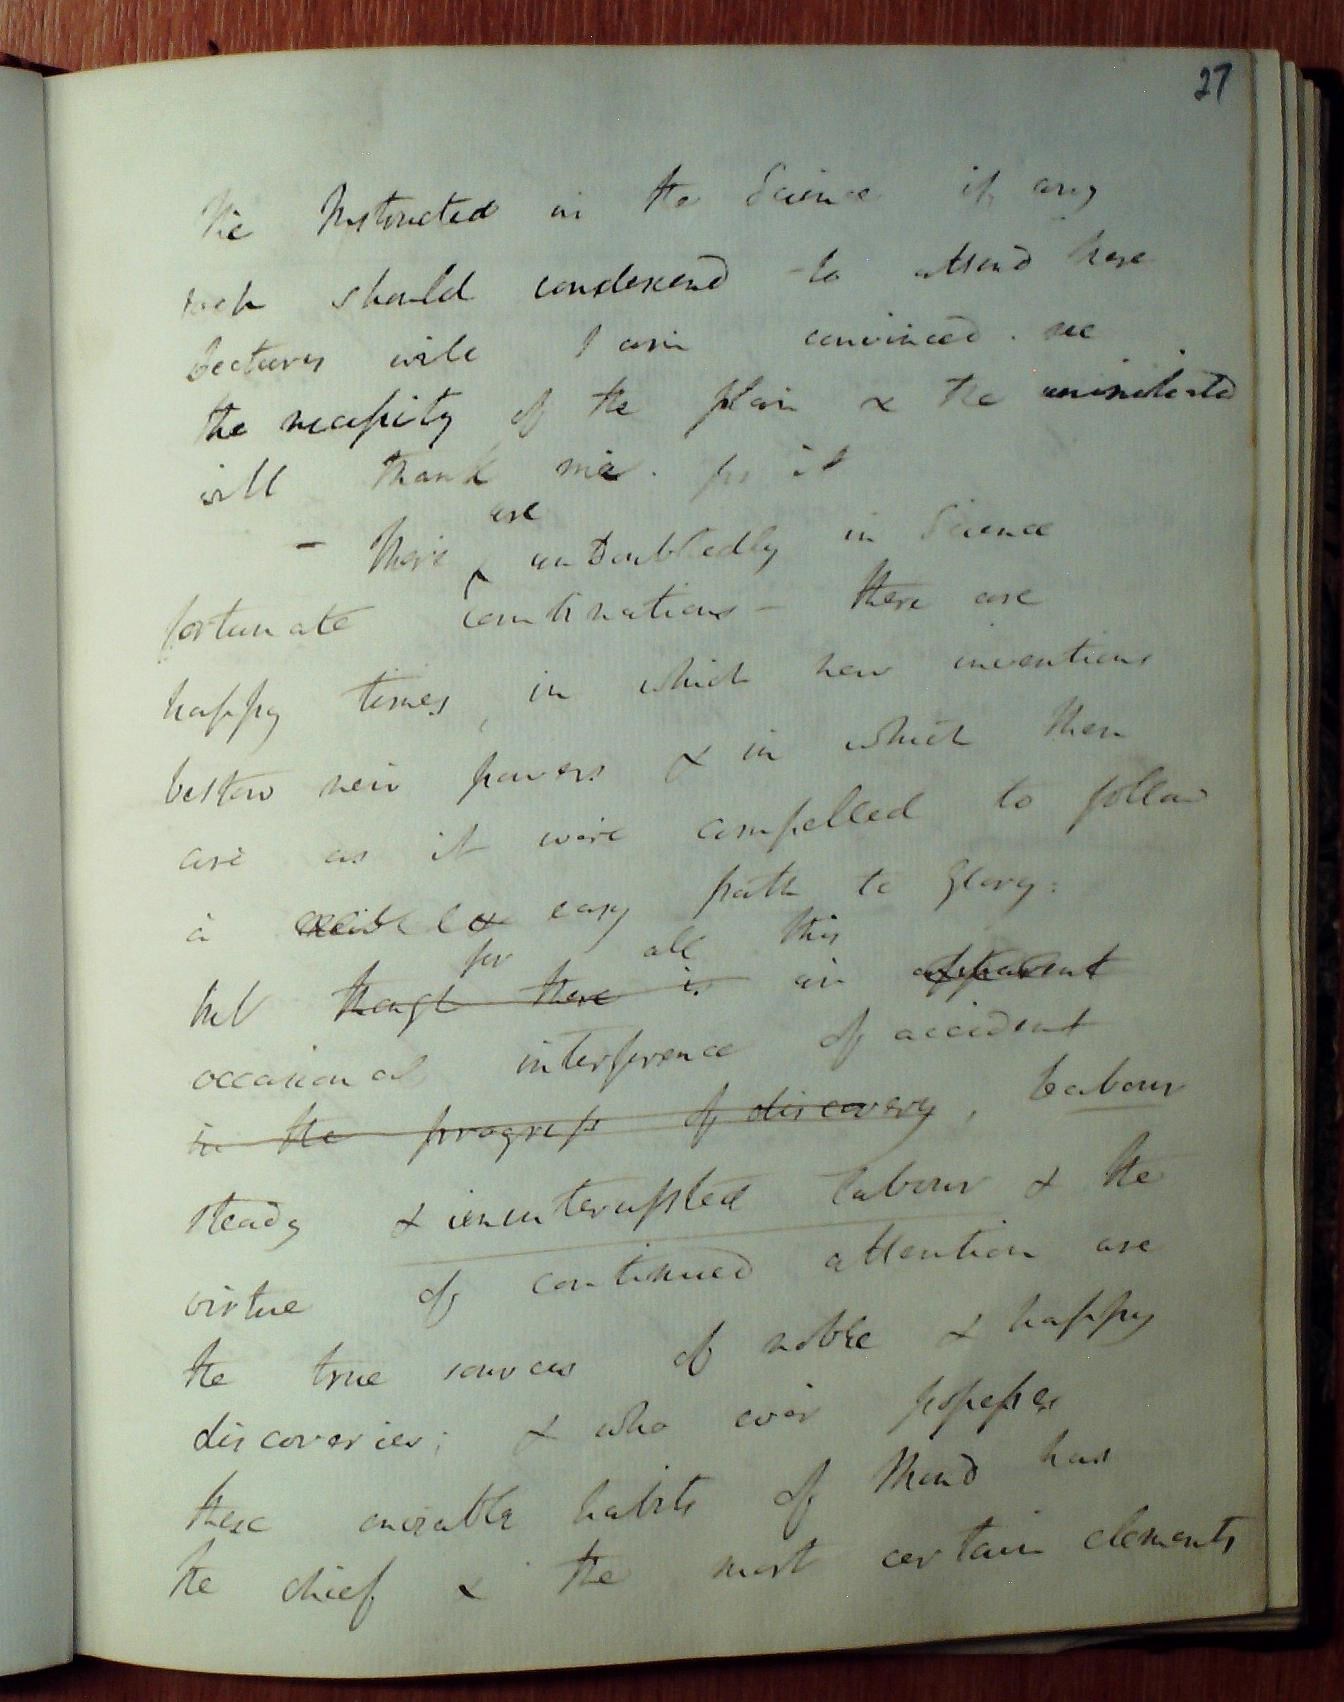 27
The Instructed in the Science if any
such should condescend to attend these
Lectures will I am convinced see
the necessity of the plan & the uninitiated
will thank me for it
are
— There undoubtedly in Science
fortunate combinations – there are
happy times, in which new inventions
bestow new powers & in which men
are as it were compelled to follow
a easy path to Glory:
for all this
but though there is an apparent
occasional interference of accident
in the progress of discovery, Labour
steady & uninterrupted labour & the
virtue of continued attention are
the true sources of noble & happy
discoveries; & who ever possesses
these enviable habits of Mind has
the chief & the most certain elements